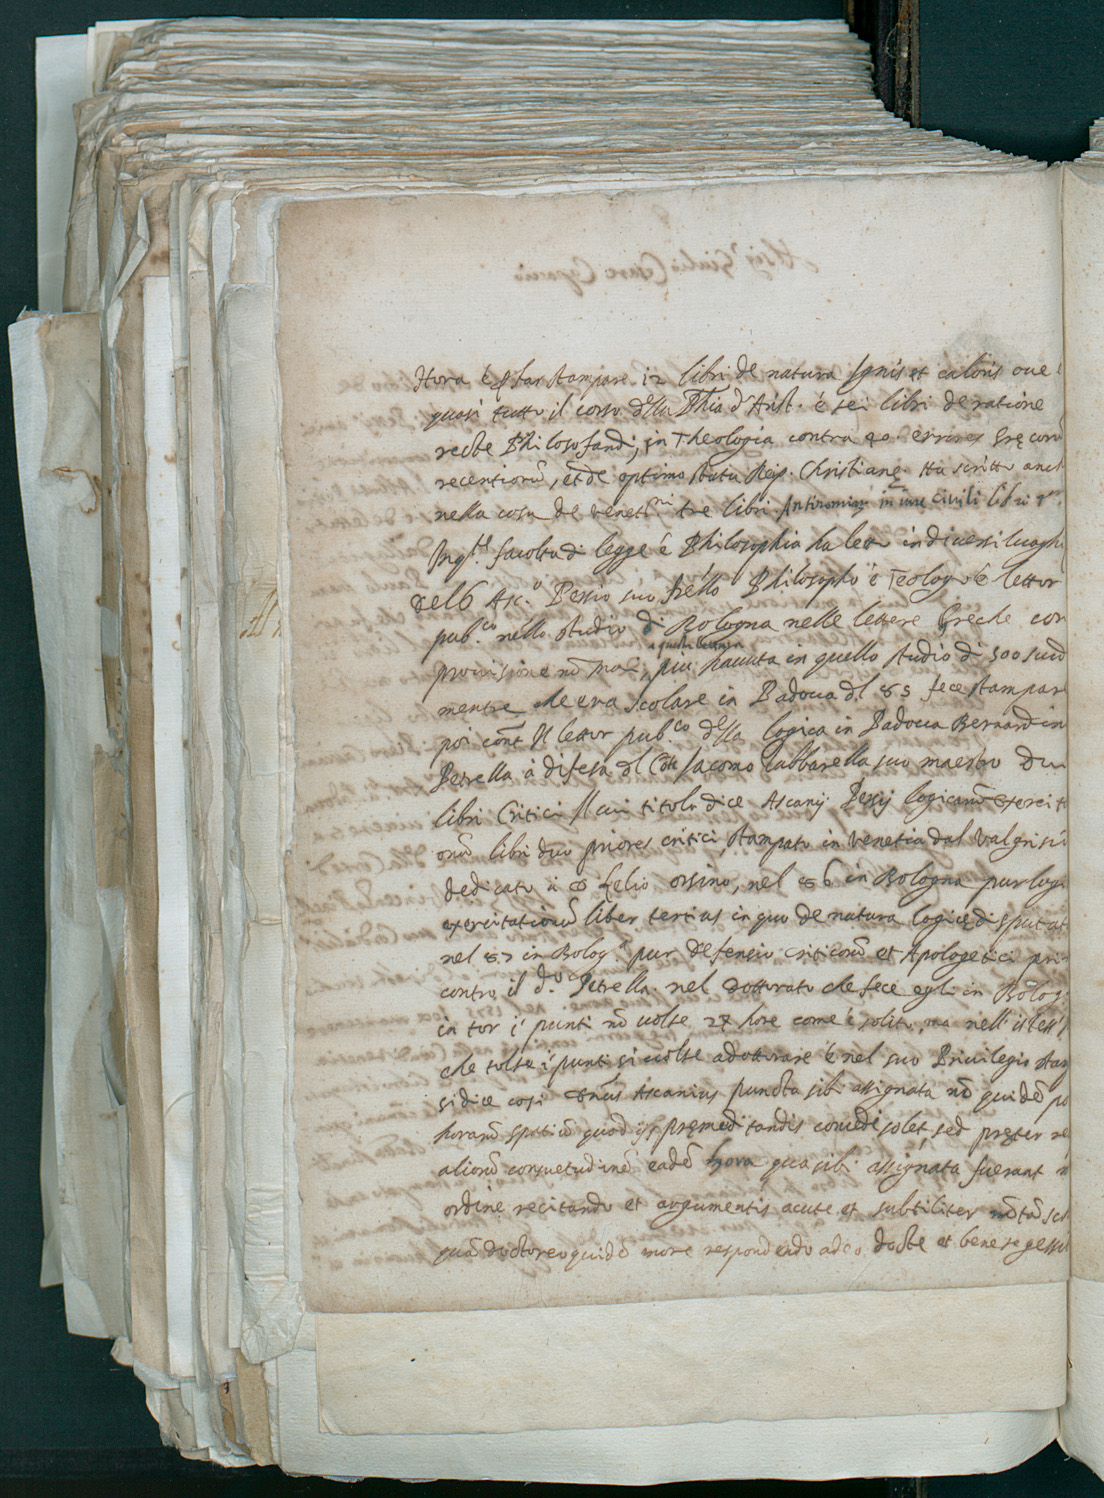 Hora é p far stampare 12 libri de natura Ignis et caloris oue
quasi tutto il corso della Phia d'Arist. é sei libri de ratione
recte Philosofandi, in Theologia contra 40 errores Gręcorū
recentiorū, et de optimo statu Reip. Christianę. Ha scritto anch
nella cosa de tre libri Antinomiarū in iure civili libri
facoltà di legge é Philosophia ha letto in diuersi luoghi
del 6 Asc.o Persio suo frello Philosopho é Teologo é lettor
pub.co nello studio di Bologna nelle lettere Greche con
prouisione nō mai più hauuta in quello studio di 300 scud
a questa lettura
mentre che era scolare in Padoua dl 85 fece stampare
poi cont Il lettor pub.co della logica in Padoua Bernardin
Petrella à difesa dl Cōte Jacomo Zabbarella suo maestro Du
libri Critici Il cui titolo dice Ascanij Persij logicarū exercit
onū libri duo priores critici, stampato in Venetia dal Valgrisi
dedicato à Lelio orsino, nel 86 in Bologna pur logi
exercitationū liber tertius in quo de natura logicę disputat
nel 87 in Bolog.a pur defensio criticorū et Apologetici pri
contro il d.o Petrella. nel dottorato che fece egli in Bolog.
in tor i' punti nō uolse 24 hore come é solito, ma nell' istess'h
che tolse i' punti si uolse adottorare é nel suo Priuilegio stam
si dice cosi Ascanius puncta sibi assignata nō quidē po
horarū spatiū quod ijs pręmeditandis concedi solet, sed pręter re
aliorū consuetudinē eadē hora qua sibi assignata fuerant
ordine recitando et argumentis acute et subtiliter nō tā sco
quā doctoreo quidē more respondendo adeo docte et bene se gessit